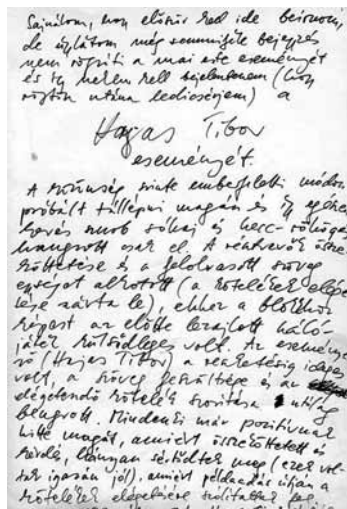 Sajnálom, hogy először kell ide beírnom,
de úgy látom még semmiféle bejegyzés
nem rögzíti a mai este eseményét
és így nekem kell bejelentenem (hogy
rögtön utána ledicsérjem) a
Hajas Tibor
eseményét.
A közönség szinte emberfeletti módon
próbált túllépni magán és így egészen
kevés snob sóhaj és hecc-röhögés
hangzott csak el. A résztvevők össze-
köttetése és a felolvasott szöveg
egységet alkotott (a kötelékek elége-
tése zárta le), ehhez a blokkhoz
képest az előtte lezajlott háló-
játék külsődleges volt. Az eseménye-
ző (Hajas Tibor) a részketésig ideges
volt, a szöveg feszültsége és az
elégetendő kötelék szorítása
beugrott. Mindenki már pozitívnak
hitte magát, amiért összekötötték és
kérdés, hányan sértődtek meg (ezek vol-
tak igazán jól), amiért példaadás útján a
kötelékek elégetésére szólították fel.